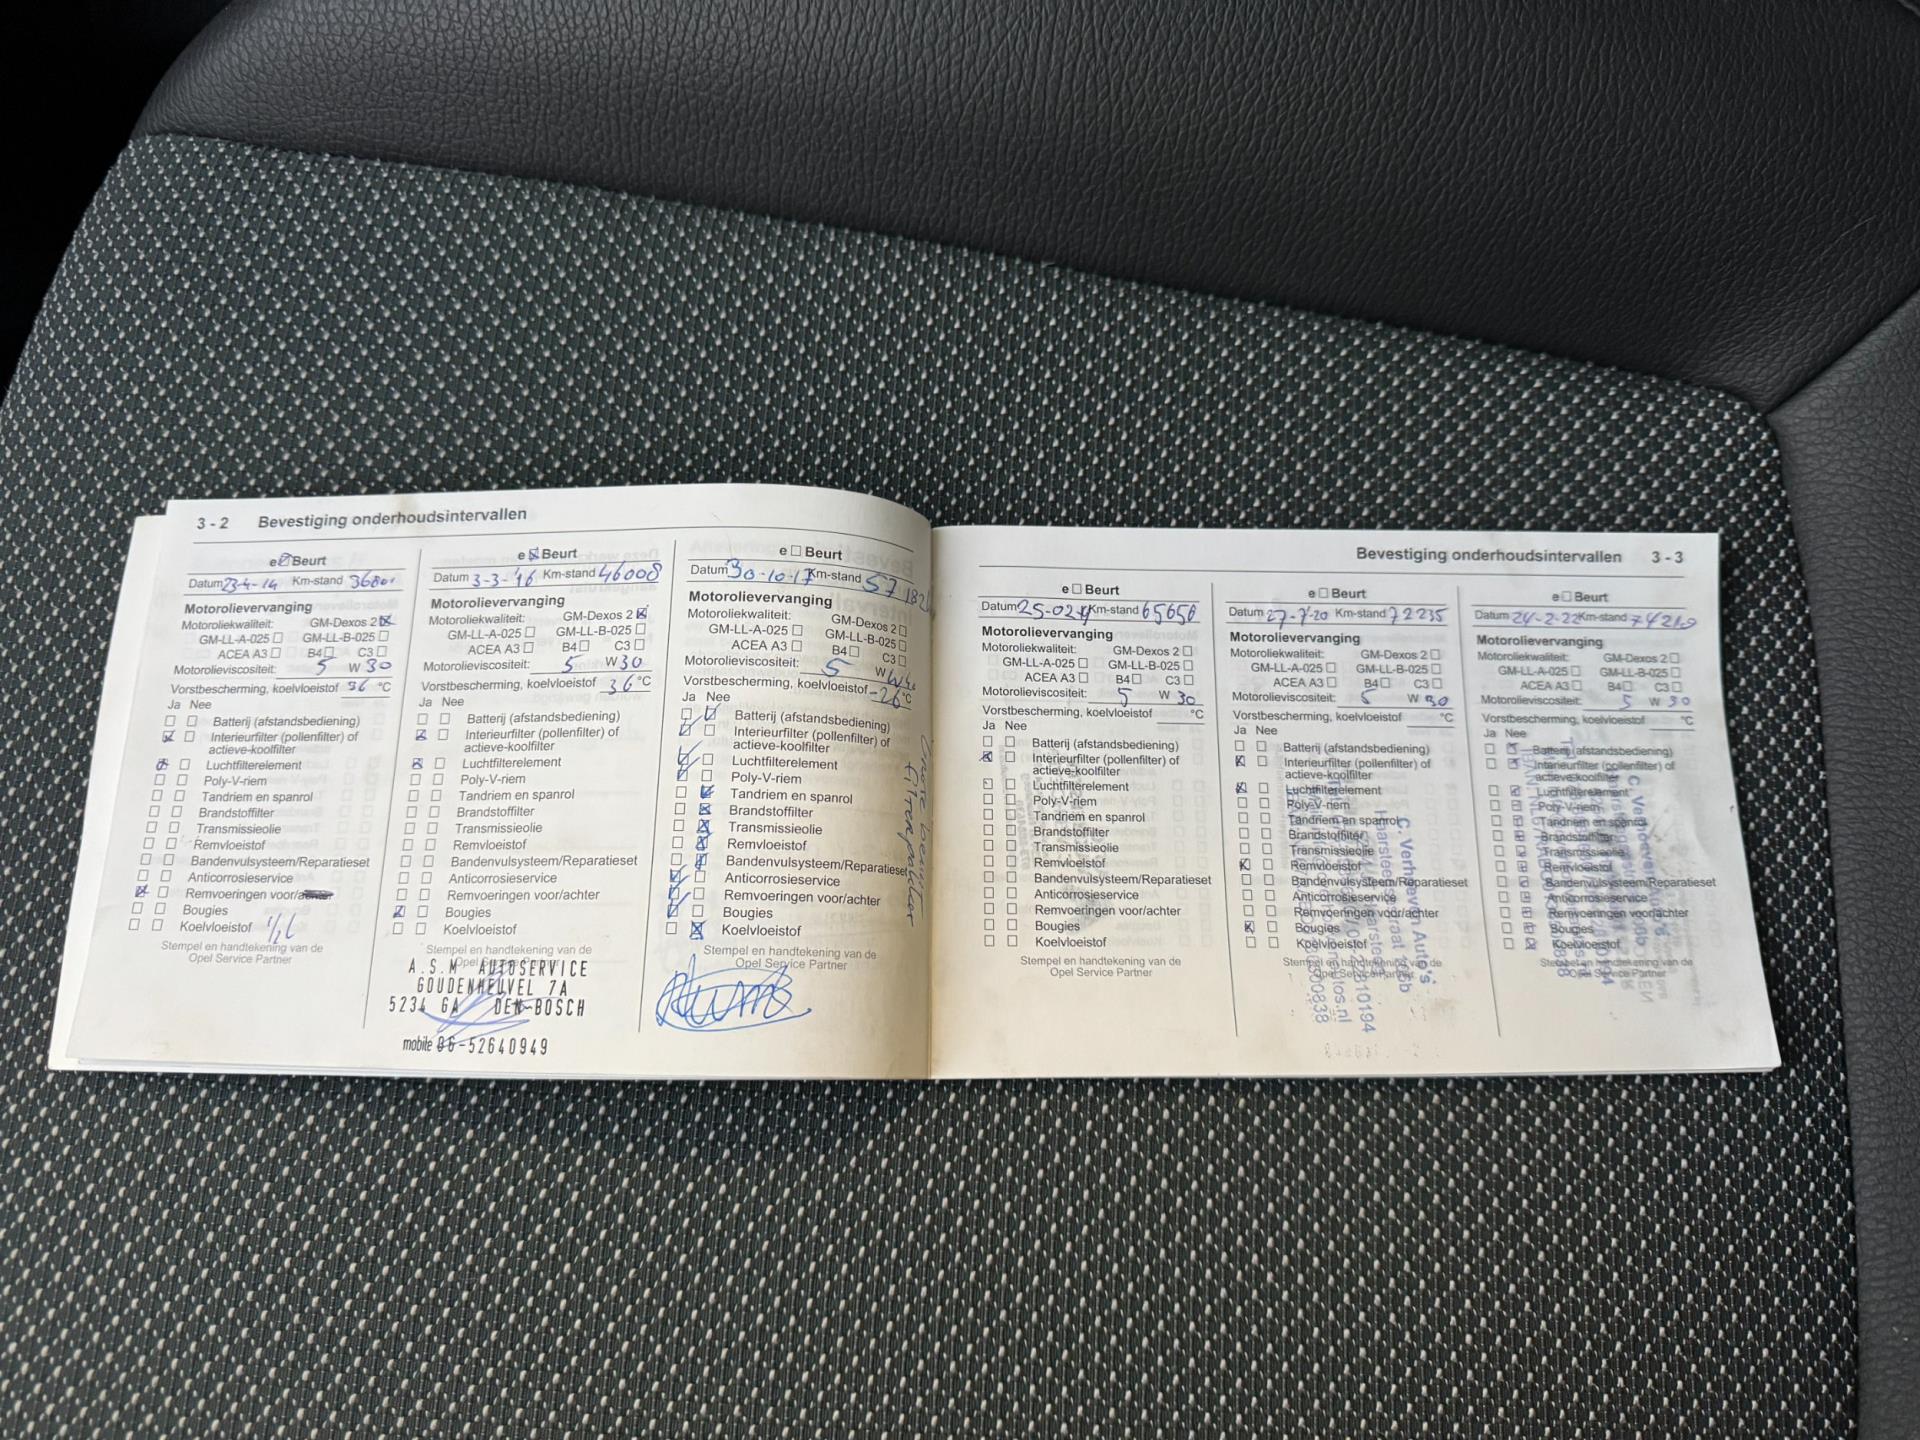 3 - 2 Bevestiging onderhoudsintervallen
e ☒ Beurt
Datum 23-4-14 Km-stand 36801
Motorolievervanging
Motoroliekwaliteit: GM-Dexos 2 ☒
GM-LL-A-025 ☐ GM-LL-B-025 ☐
ACEA A3 ☐ B4 ☐ C3 ☐
Motorolieviscositeit: 5 W 30
Vorstbescherming, koelvloeistof 36 °C
Ja Nee
☐ ☐ Batterij (afstandsbediening)
☒ ☐ Interieurfilter (pollenfilter) of
actieve-koolfilter
☒ ☐ Luchtfilterelement
☐ ☐ Poly-V-riem
☐ ☐ Tandriem en spanrol
☐ ☐ Brandstoffilter
☐ ☐ Transmissieolie
☐ ☐ Remvloeistof
☐ ☐ Bandenvulsysteem/Reparatieset
☐ ☐ Anticorrosieservice
☒ ☐ Remvoeringen voor/achter
☐ ☐ Bougies
☐ ☐ Koelvloeistof 1/2 L
Stempel en handtekening van de
Opel Service Partner
e ☒ Beurt
Datum 3-3-'16 Km-stand 46008
Motorolievervanging
Motoroliekwaliteit: GM-Dexos 2 ☒
GM-LL-A-025 ☐ GM-LL-B-025 ☐
ACEA A3 ☐ B4 ☐ C3 ☐
Motorolieviscositeit: 5 W 30
Vorstbescherming, koelvloeistof 36 °C
Ja Nee
☐ ☐ Batterij (afstandsbediening)
☒ ☐ Interieurfilter (pollenfilter) of
actieve-koolfilter
☒ ☐ Luchtfilterelement
☐ ☐ Poly-V-riem
☐ ☐ Tandriem en spanrol
☐ ☐ Brandstoffilter
☐ ☐ Transmissieolie
☐ ☐ Remvloeistof
☐ ☐ Bandenvulsysteem/Reparatieset
☐ ☐ Anticorrosieservice
☐ ☐ Remvoeringen voor/achter
☒ ☐ Bougies
☐ ☐ Koelvloeistof
Stempel en handtekening van de
Opel Service Partner
A.S.M AUTOSERVICE
GOUDENHEUVEL 7A
5234 GA DEN-BOSCH
mobile 06-52640949
e ☐ Beurt
Datum 30-10-17 Km-stand 57182
Motorolievervanging
Motoroliekwaliteit: GM-Dexos 2 ☐
GM-LL-A-025 ☐ GM-LL-B-025 ☐
ACEA A3 ☐ B4 ☐ C3 ☐
Motorolieviscositeit: 5 W
Vorstbescherming, koelvloeistof -26 °C
Ja Nee
Batterij (afstandsbediening)
Interieurfilter (pollenfilter) of
actieve-koolfilter
Luchtfilterelement
Poly-V-riem
Tandriem en spanrol
Brandstoffilter
Transmissieolie
Remvloeistof
Bandenvulsysteem/Reparatieset
Anticorrosieservice
Remvoeringen voor/achter
Bougies
Koelvloeistof
Stempel en handtekening van de
Opel Service Partner
Bevestiging onderhoudsintervallen 3 - 3
e ☐ Beurt
Datum 25-02- Km-stand 65650
Motorolievervanging
Motoroliekwaliteit: GM-Dexos 2 ☐
GM-LL-A-025 ☐ GM-LL-B-025 ☐
ACEA A3 ☐ B4 ☐ C3 ☐
Motorolieviscositeit: 5 W 30
Vorstbescherming, koelvloeistof °C
Ja Nee
☐ ☐ Batterij (afstandsbediening)
☒ ☐ Interieurfilter (pollenfilter) of
actieve-koolfilter
☐ ☐ Luchtfilterelement
☐ ☐ Poly-V-riem
☐ ☐ Tandriem en spanrol
☐ ☐ Brandstoffilter
☐ ☐ Transmissieolie
☐ ☐ Remvloeistof
☐ ☐ Bandenvulsysteem/Reparatieset
☐ ☐ Anticorrosieservice
☐ ☐ Remvoeringen voor/achter
☐ ☐ Bougies
☐ ☐ Koelvloeistof
Stempel en handtekening van de
Opel Service Partner
e ☐ Beurt
Datum 27-7-20 Km-stand 72235
Motorolievervanging
Motoroliekwaliteit: GM-Dexos 2 ☐
GM-LL-A-025 ☐ GM-LL-B-025 ☐
ACEA A3 ☐ B4 ☐ C3 ☐
Motorolieviscositeit: 5 W 30
Vorstbescherming, koelvloeistof °C
Ja Nee
☐ ☐ Batterij (afstandsbediening)
☒ ☐ Interieurfilter (pollenfilter) of
actieve-koolfilter
☒ ☐ Luchtfilterelement
☐ ☐ Poly-V-riem
☐ ☐ Tandriem en spanrol
☐ ☐ Brandstoffilter
☐ ☐ Transmissieolie
☒ ☐ Remvloeistof
☐ ☐ Bandenvulsysteem/Reparatieset
☐ ☐ Anticorrosieservice
☐ ☐ Remvoeringen voor/achter
☒ ☐ Bougies
☐ ☐ Koelvloeistof
Stempel en handtekening van de
Opel Service Partner
C. Verhoeven Auto's
e ☐ Beurt
Datum 24-2-22 Km-stand 74219
Motorolievervanging
Motoroliekwaliteit: GM-Dexos 2 ☐
GM-LL-A-025 ☐ GM-LL-B-025 ☐
ACEA A3 ☐ B4 ☐ C3 ☐
Motorolieviscositeit: 5 W 30
Vorstbescherming, koelvloeistof °C
Ja Nee
Batterij (afstandsbediening)
Interieurfilter (pollenfilter) of
actieve-koolfilter
Luchtfilterelement
Poly-V-riem
Tandriem en spanrol
Brandstoffilter
Transmissieolie
Remvloeistof
Bandenvulsysteem/Reparatieset
Anticorrosieservice
Remvoeringen voor/achter
Bougies
Koelvloeistof
Stempel en handtekening van de
Opel Service Partner